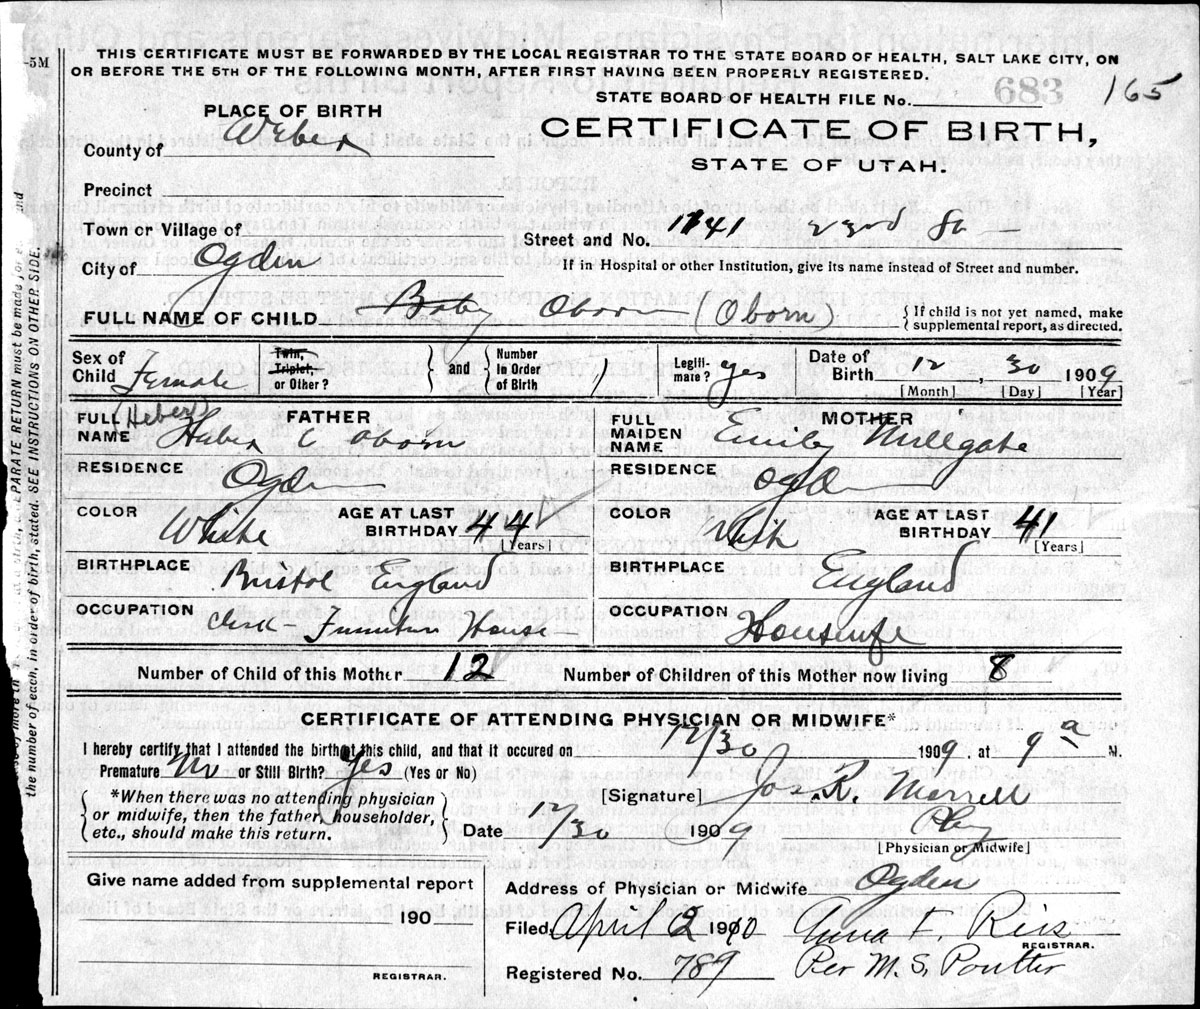 THIS CERTIFICATE MUST BE FORWARDED BY THE LOCAL REGISTRAR TO THE STATE BOARD OF HEALTH, SALT LAKE CITY, ON
OR BEFORE THE 5TH OF THE FOLLOWING MONTH, AFTER FIRST HAVING BEEN PROPERLY REGISTERED.
-5M
STATE BOARD OF HEALTH FILE No. 683 165
PLACE OF BIRTH
CERTIFICATE OF BIRTH,
STATE OF UTAH.
County of Weber
Precinct
Town or Village of
Street and No. 1141 23rd St
City of Ogden
If in Hospital or other Institution, give its name instead of Street and number.
FULL NAME OF CHILD Baby Oborn (Oborn) { If child is not yet named, make supplemental report, as directed.
Sex of Child Female
Twin, Triplet, or Other? } and { Number in Order of Birth 1
Legitimate? yes
Date of Birth 12, 30 1909
[Month] [Day] [Year]
FATHER
FULL NAME (Heber) Heber C Oborn
RESIDENCE Ogden
COLOR White
AGE AT LAST BIRTHDAY 44
[Years]
BIRTHPLACE Bristol England
OCCUPATION Clerk - Furniture House
MOTHER
FULL MAIDEN NAME Emily Millgate
RESIDENCE Ogden
COLOR White
AGE AT LAST BIRTHDAY 41
[Years]
BIRTHPLACE England
OCCUPATION Housewife
Number of Child of this Mother 12
Number of Children of this Mother now living 8
CERTIFICATE OF ATTENDING PHYSICIAN OR MIDWIFE*
I hereby certify that I attended the birth of this child, and that it occured on 12/30 1909. at 9 a M.
Premature No or Still Birth? Yes (Yes or No)
*When there was no attending physician
or midwife, then the father, householder,
etc., should make this return.
[Signature] Jos. R. Morrell
Date 12/30 1909 Phy
[Physician or Midwife]
Give name added from supplemental report
190
REGISTRAR.
Address of Physician or Midwife Ogden
Filed, April 2 1910 Anna F. Reis
REGISTRAR.
Registered No. 789 Per M. S. Poulter
PARATE RETURN must be made for
and
the number of each, in order of birth, stated. SEE INSTRUCTIONS ON OTHER SIDE.